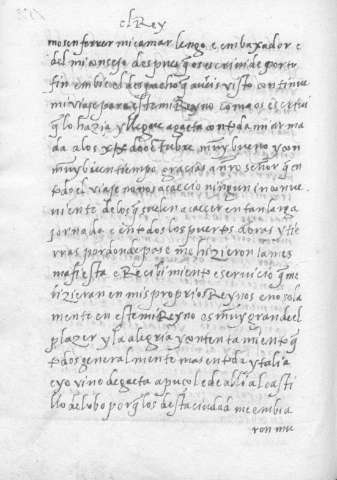 el Rey
mosen ferrer mi camarlengo e embaxador e
del mi consejo despues q os escrivi de porto
fin embie el despacho q aveis visto continue
mi viaje para este mi Reyno como os escrevi
q lo hazia y llegue a gaeta con toda mi arma
da a los xix de octubre muy bueno y con
muy buen tiempo gracias a nro señor q en
todo el viaje no nos acaecio ningun inconve
niente de los q suelen acaecer en tan larga
jornada e en todos los puertos obras y tie
rras por donde pase me hizieron la mes
ma fiesta e Recibimiento e servicio q me
hizieran en mis proprios Reynos e no sola
mente en este mi Reyno es muy grande el
plazer y la alegria y contentamiento q
todos generalmente mas en toda ytalia
e yo vine de gaeta a puçol e de alli al casti
llo del obo porq los desta ciudad me embia
ron mu